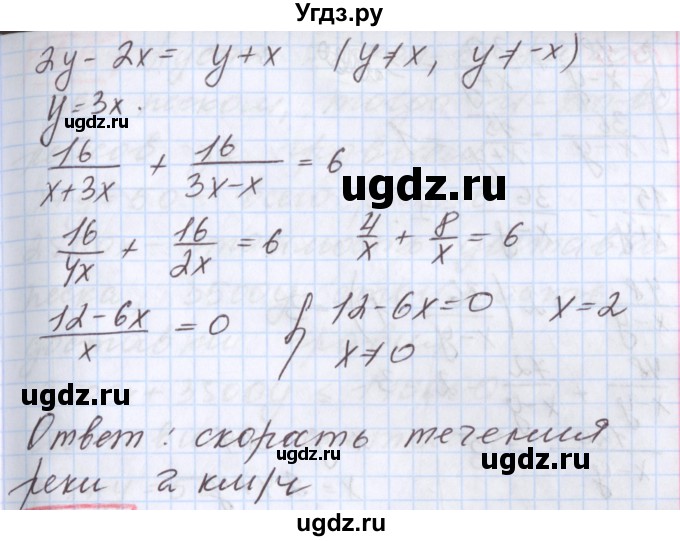 Угдз.ру
2y - 2x = y + x (y ≠ x, y ≠ -x)
y = 3x.
ugdz.ru ugdz.ru
16/(x+3x) + 16/(3x-x) = 6
ugdz.ru
16/4x + 16/2x = 6 4/x + 8/x = 6
ugdz.ru
(12-6x)/x = 0 { 12-6x=0 x=2
x ≠ 0
ugdz.ru ugdz.ru
Ответ: скорость течения
реки 2 км/ч
ugdz.ru ugdz.ru
ugdz.ru